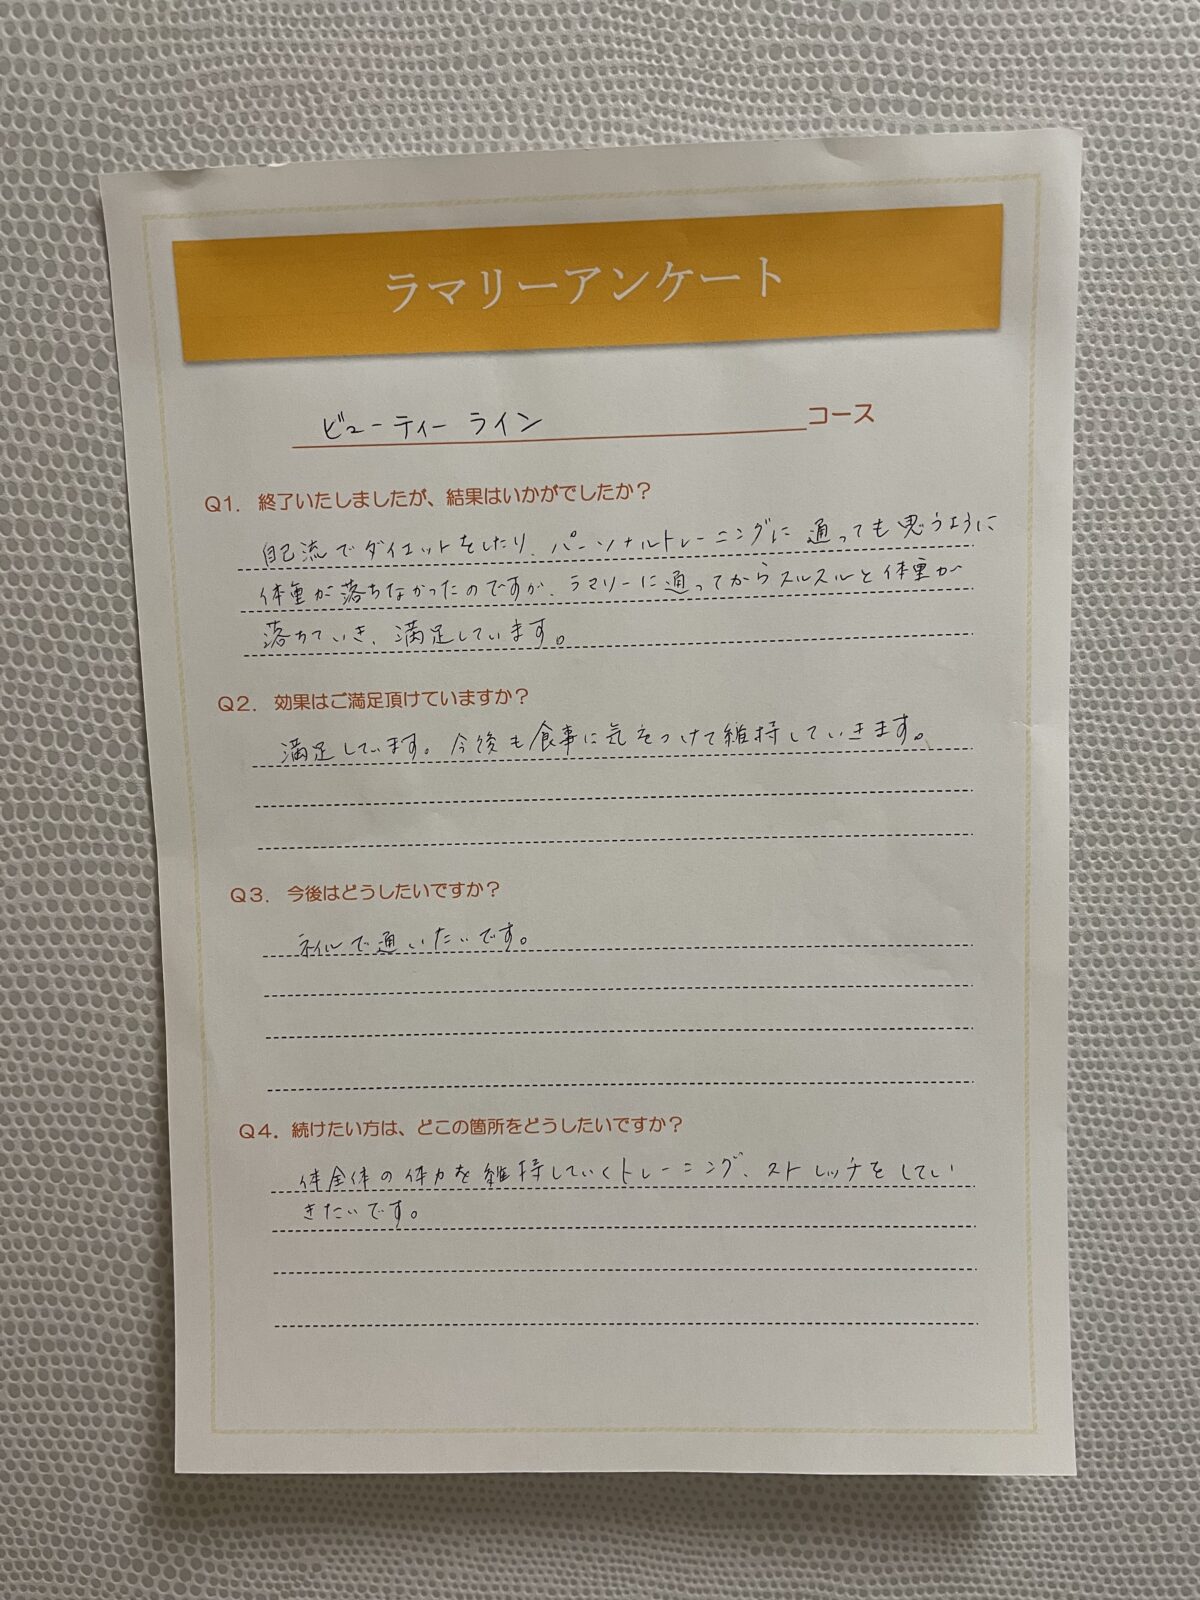 ラマリーアンケート
ビューティーライン コース
Q1. 終了いたしましたが、結果はいかがでしたか？
自己流でダイエットをしたり、パーソナルトレーニングに通っても思うように
体重が落ちなかったのですが、ラマリーに通ってからスルスルと体重が
落ちていき、満足しています。
Q2. 効果はご満足頂けていますか？
満足しています。今後も食事に気をつけて維持していきます。
Q3. 今後はどうしたいですか？
ネイルで通いたいです。
Q4. 続けたい方は、どこの箇所をどうしたいですか？
体全体の体力を維持していくトレーニング、ストレッチをしてい
きたいです。